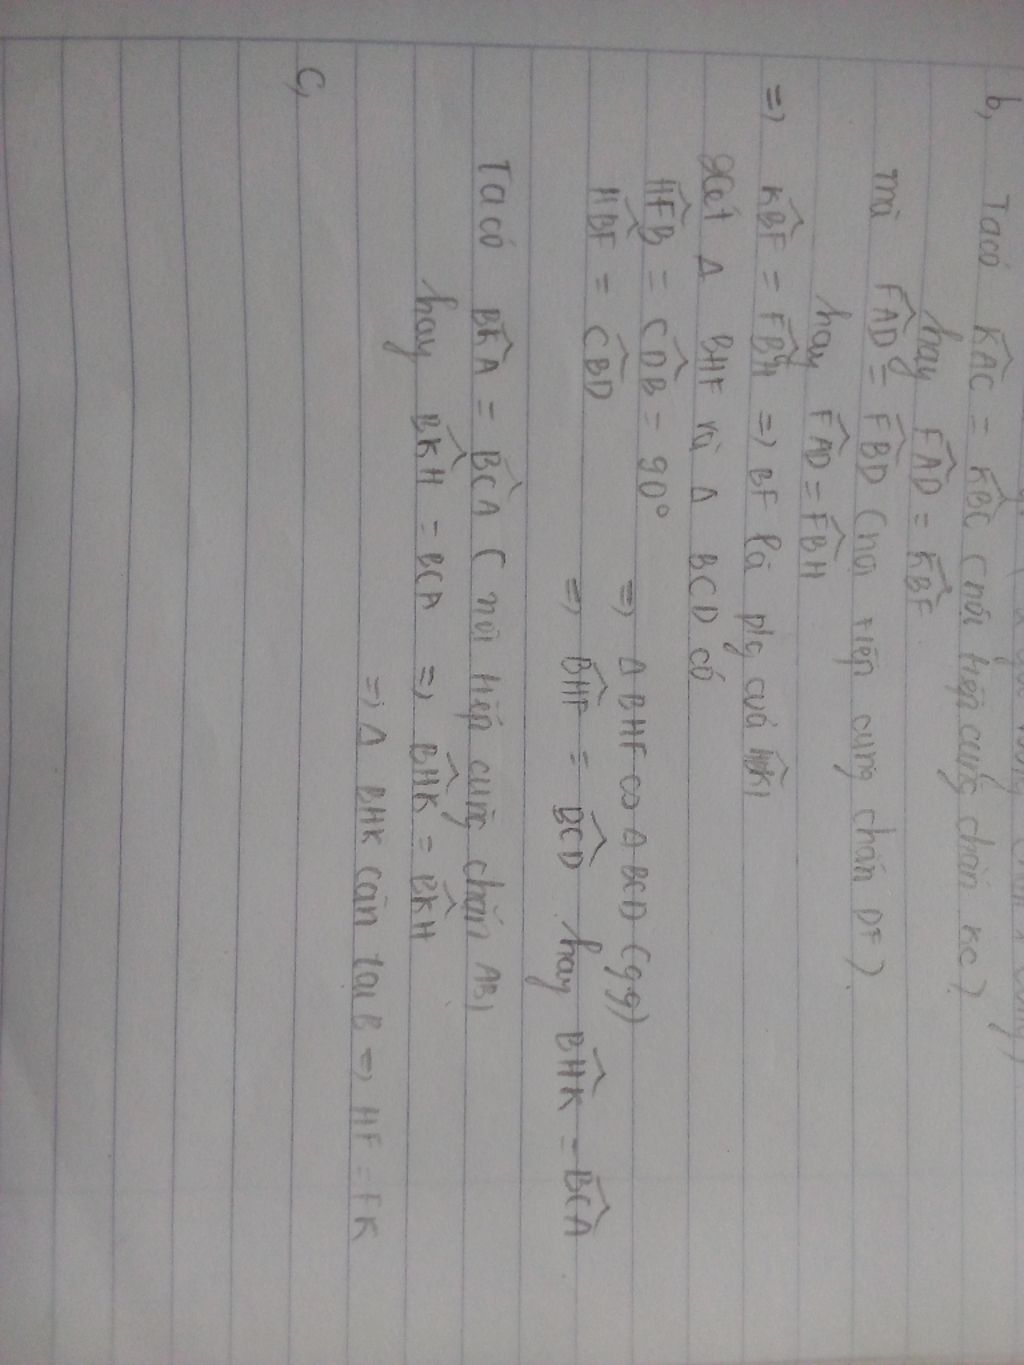 b, Ta có K̂AC = K̂BC ( nội tiếp cùng chắn KC)
hay F̂AD = K̂BF
mà F̂AD = F̂BD ( nội tiếp cùng chắn DF)
hay F̂AD = F̂BH
=> K̂BF = F̂BH => BF là p/g của
Xét Δ BHF và Δ BCD có
ĤFB = ĈDB = 90°
ĤBF = ĈBD
=> Δ BHF ∽ Δ BCD (gg)
=> B̂HF = B̂CD hay B̂HK = B̂CA
Ta có B̂KA = B̂CA ( nội tiếp cùng chắn AB)
hay B̂KH = BCA => B̂HK = B̂KH
=> Δ BHK cân tại B => HF = FK
C,